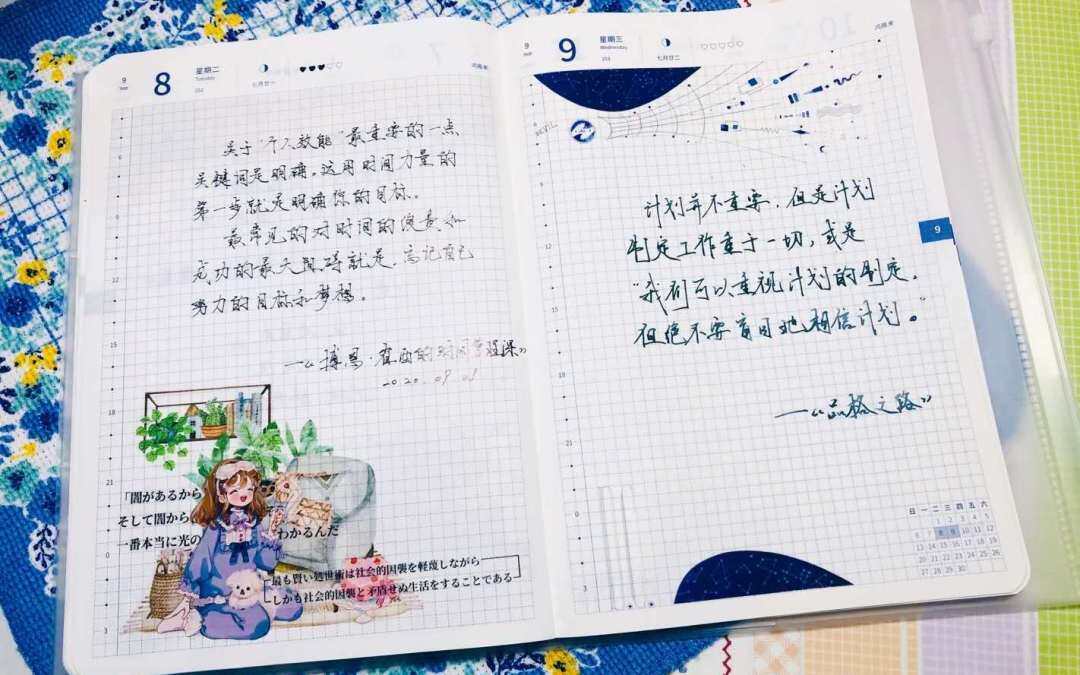 9
8
星期二
Tuesday
252
七月廿一
关于"个人效能"最重要的一点
关键词是明确。运用时间力量的
第一步就是明确你的目标。
最常见的对时间的浪费和
成功的最大阻碍就是,忘记自己
努力的目标和梦想。
—《博恩·崔西的时间管理课》
2020.09.08
「闇があるから
そして闇から
一番本当に光の
わかるんだ
最も賢い処世術は社会的因襲を軽蔑しながら
しかも社会的因襲と矛盾せぬ生活をすることである
9
9
星期三
Wednesday
253
七月廿二
计划并不重要,但是计划
制定工作重于一切,或是
"我们可以重视计划的制定,
但绝不要盲目地相信计划。"
—《品格之路》
9
日 一 二 三 四 五 六
1 2 3 4 5
6 7 8 9 10 11 12
13 14 15 16 17 18 19
20 21 22 23 24 25 26
27 28 29 30